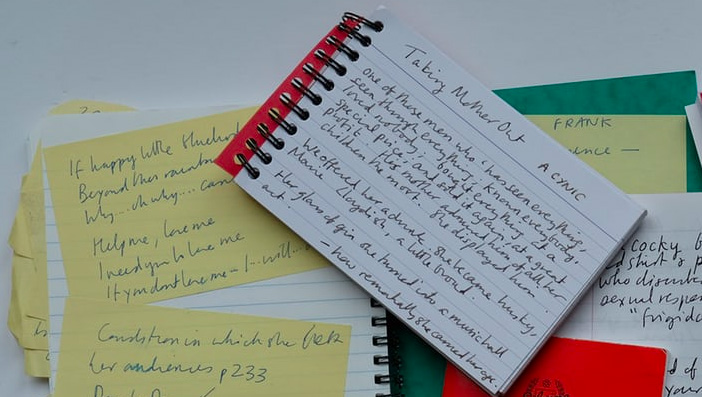 If happy little bluebirds
Beyond the rainbow
Why... oh why... can
Help me, love me
I need you to love me
If you don't love me – I... will...
Condition in which she
her audiences p233
Taking Mother Out
A CYNIC
One of those men who 'has seen everything,
seen through everything, known everybody,
loved nobody, bought everything at a
special price, and sold it again at a great
profit'. His mother admired him of all her
children the most. She displayed him.
We offered her a drink. She became husky,
Marie Lloydish, a little broad.
Her glass of gin she turned into a musichall
act
– how remarkably she carried her age.
FRANK
ence –
cocky
red shirt &
who discuss
sexual respon
"frigid
d of
your